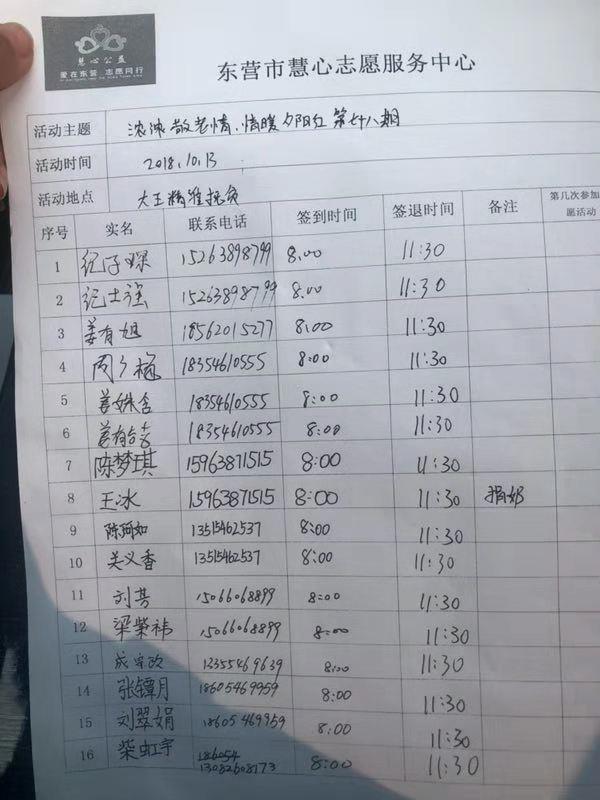 慧心公益
爱在东营 志愿同行
东营市慧心志愿服务中心
活动主题 浓浓敬老情、情暖夕阳红 第廿八期
活动时间 2018.10.13
活动地点 大王精准扶贫
序号 实名 联系电话 签到时间 签退时间 备注 第几次参加
愿活动
1 纪子 15263898799 8:00 11:30
2 纪士强 15263898799 8:00 11:30
3 姜有旭 18562015277 8:00 11:30
4 周 梅 18354610555 8:00 11:30
5 姜姝含 18354610555 8:00 11:30
6 姜有 18354610555 8:00 11:30
7 陈梦琪 15963871515 8:00 11:30
8 王冰 15963871515 8:00 11:30 捐奶
9 陈珂如 13515462537 8:00 11:30
10 关义香 13515462537 8:00 11:30
11 刘 15066068899 8:00 11:30
12 梁荣祎 15066068899 8:00 11:30
13 成 13355469639 8:00 11:30
14 张镡月 18605469959 8:00 11:30
15 刘翠娟 18605469959 8:00 11:30
16 柴虹宇 13082608173 8:00 11:30